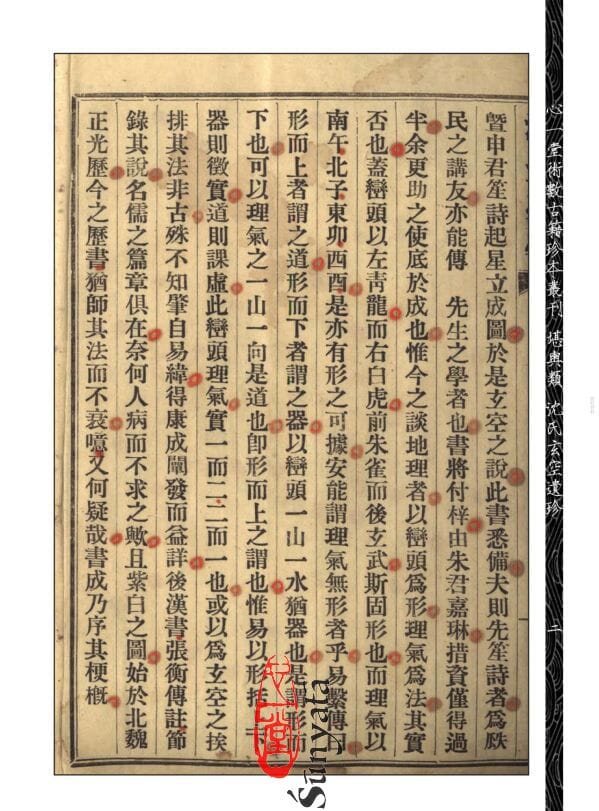 曁申君笙詩起星立成圖於是玄空之說此書悉備夫則先笙詩者爲
民之講友亦能傳 先生之學者也書將付梓由朱君嘉琳措貲僅得過
半余更助之使底於成也惟今之談地理者以巒頭爲形理氣爲法其實
否也蓋巒頭以左靑龍而右白虎前朱雀而後玄武斯固形也而理氣以
南午北子東卯西酉是亦有形之可據安能謂理氣無形者乎易繫傳曰
形而上者謂之道形而下者謂之器以巒頭一山一水猶器也是謂形而
下也可以理氣之一山一向是道也卽形而上之謂也惟易以形括
器則徵實道則課虛此巒頭理氣實一而二二而一也或以爲玄空之挨
排其法非古殊不知肇自易緯得康成闡發而益詳後漢書張衡傳註節
錄其說名儒之篇章俱在奈何人病而不求之歟且紫白之圖始於北魏
正光歷今之歷書猶師其法而不衰噫又何疑哉書成乃序其梗槪
心一堂術數古籍珍本叢刊 堪輿類 沈氏玄空遺珍
二
心一堂
Śūnyata